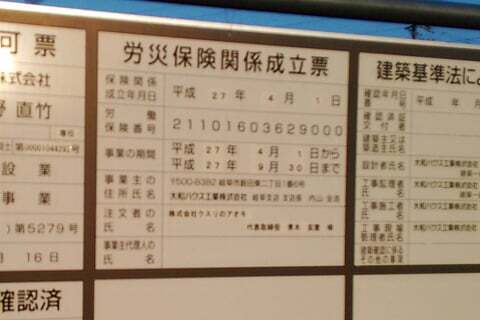 可票
株式会社
野 直竹
専任
設 業
事 業
) 第5279 号
月 16 日
確認済
労災保険関係成立票
保険関係
成立年月日
平成 27年 4月 1日
労働
保険番号
21101603629000
事業の期間
平成 27年 4月 1日から
平成 27年 9月 30日まで
事業主の
住所氏名
〒500-8382 岐阜市薮田東二丁目1番6号
大和ハウス工業株式会社 岐阜支店 支店長 内山
注文者の
氏名
株式会社クスリのアオキ
代表取締役 青木
事業主代理人の
氏名
建築基準法によ
確認年月日
番号
平成 年
確認済証
交付者
建築主又は
築造主氏名
設計者氏名
大和ハウス工業株式会社
工事監理者
氏名
大和ハウス工業株式会社
工事施工者
氏名
大和ハウス工業株式会社
工事現場
管理者氏名
大和ハウス工業株式会社
建築確認に係る
その他の事項